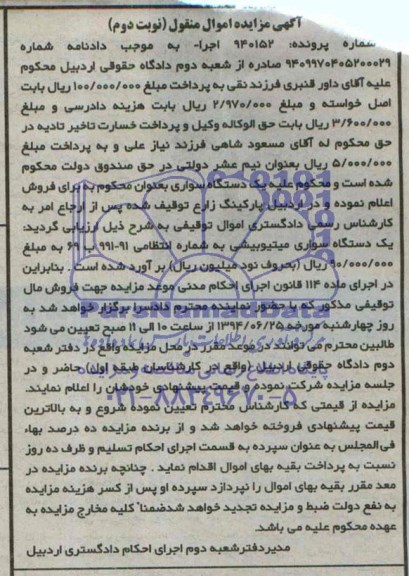 آگهی مزایده اموال منقول (نوبت دوم)
شماره پرونده: ۹۴۰۱۵۲ اجرا- به موجب دادنامه شماره
۹۴۰۹۹۷۰۴۰۵۲۰۰۰۲۹ صادره از شعبه دوم دادگاه حقوقی اردبیل محکوم
علیه آقای داور قنبری فرزند نقی به پرداخت مبلغ ۱۰۰/۰۰۰/۰۰۰ ریال بابت
اصل خواسته و مبلغ ۲/۹۷۰/۰۰۰ ریال بابت هزینه دادرسی و مبلغ
۳/۶۰۰/۰۰۰ ریال بابت حق الوکاله وکیل و پرداخت خسارت تاخیر تادیه در
حق محکوم له آقای مسعود شاهی فرزند نیاز علی و به پرداخت مبلغ
۵/۰۰۰/۰۰۰ ریال بعنوان نیم عشر دولتی در حق صندوق دولت محکوم
شده است و محکوم علیه یک دستگاه سواری بعنوان محکوم به برای فروش
اعلام نموده و در اردبیل پارکینگ زارع توقیف شده پس از ارجاع امر به
کارشناس رسمی دادگستری اموال توقیفی به شرح ذیل ارزیابی گردید:
یک دستگاه سواری میتیوبیشی به شماره انتظامی ۹۱-۹۹۱ ب ۶۹ به مبلغ
۹۰/۰۰۰/۰۰۰ ریال (بحروف نود میلیون ریال) بر آورد شده است . بنابراین
در اجرای ماده ۱۱۴ قانون اجرای احکام مدنی موعد مزایده جهت فروش مال
توقیفی مذکور که با حضور نماینده محترم دادسرا برگزار خواهد شد به
روز چهارشنبه مورخه ۱۳۹۴/۰۶/۲۵ از ساعت ۱۰ الی ۱۱ صبح تعیین می شود
طالبین محترم می توانند در موعد مقرر در محل مزایده واقع در دفتر شعبه
دوم دادگاه حقوقی اردبیل (واقع در کارشناسان طبقه اول) حاضر و در
جلسه مزایده شرکت نموده و قیمت پیشنهادی خودشان را اعلام نمایند.
مزایده از قیمتی که کارشناس محترم تعیین نموده شروع و به بالاترین
قیمت پیشنهادی فروخته خواهد شد و از برنده مزایده ده درصد بهاء
فی المجلس به عنوان سپرده به قسمت اجرای احکام تسلیم و ظرف ده روز
نسبت به پرداخت بقیه بهای اموال اقدام نماید . چنانچه برنده مزایده در
معد مقرر بقیه بهای اموال را نپردازد سپرده او پس از کسر هزینه مزایده
به نفع دولت ضبط و مزایده تجدید خواهد شد ضمنا کلیه مخارج مزایده به
عهده محکوم علیه می باشد.
مدیر دفتر شعبه دوم اجرای احکام دادگستری اردبیل
۰۲۱-۸۸۳۴۹۶۷۰-۵